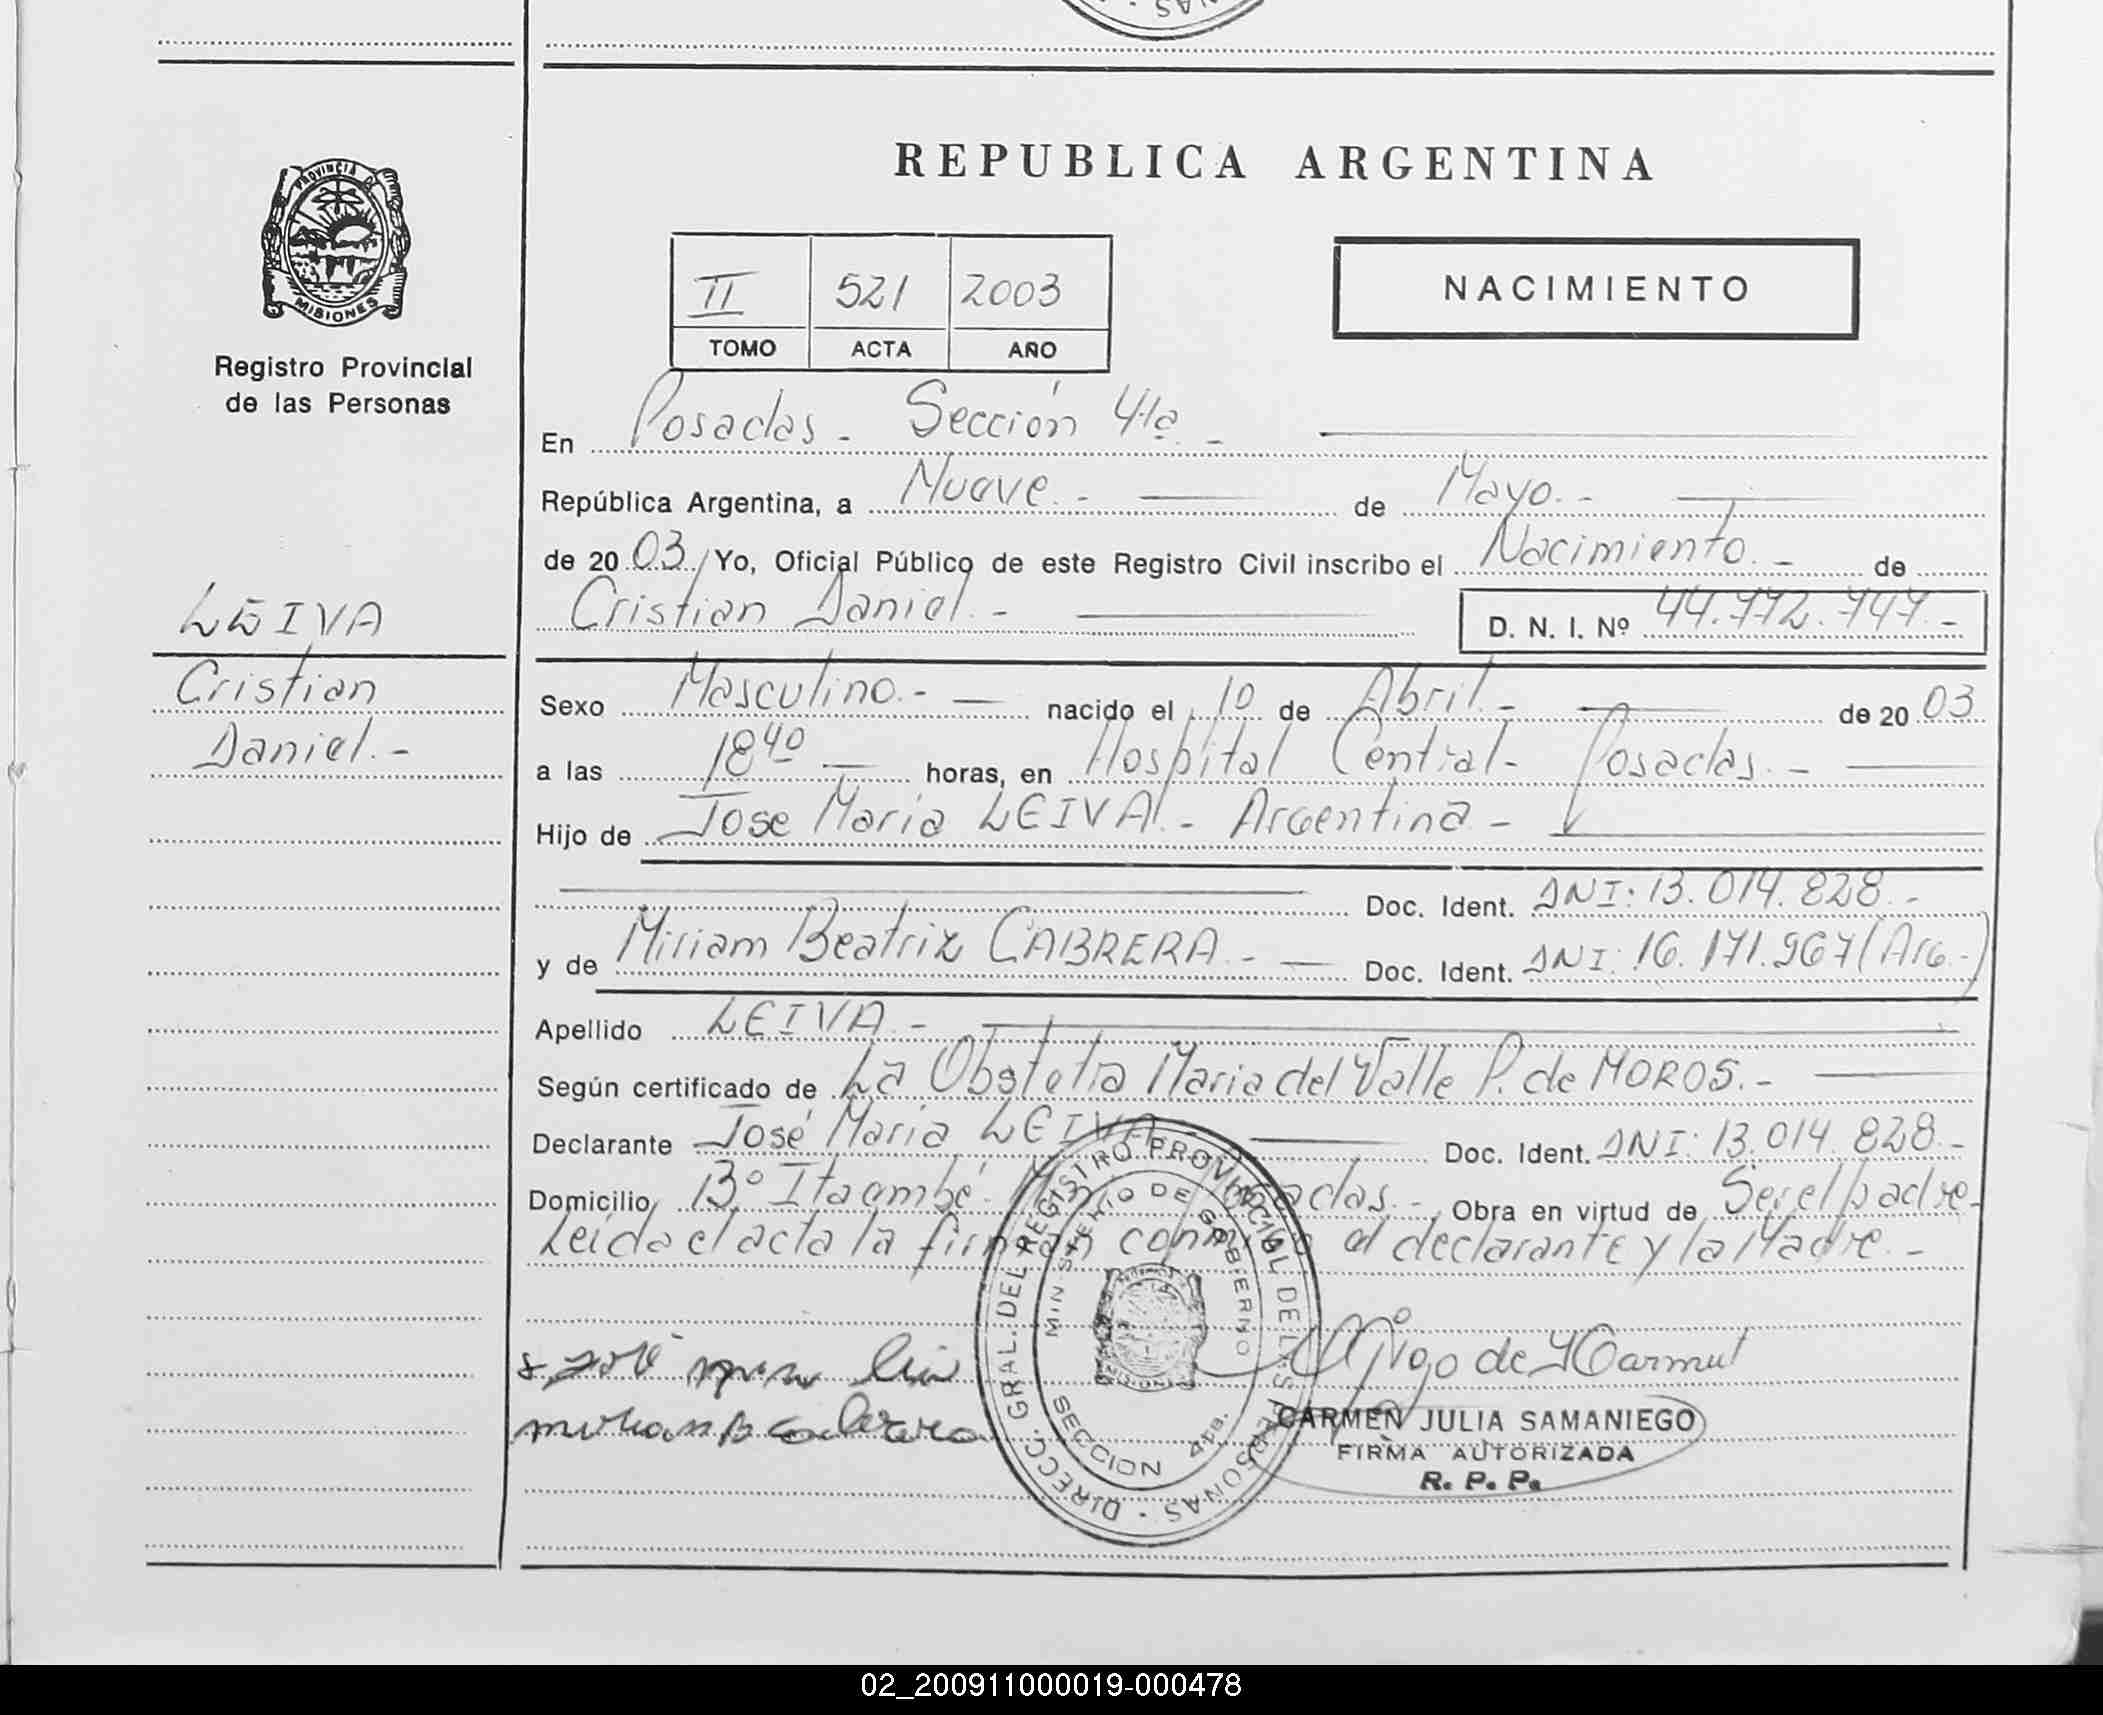 PROVINCIA DE
MISIONES
Registro Provincial
de las Personas
LEIVA
Cristian
Daniel.-
REPUBLICA ARGENTINA
II 521 2003
TOMO ACTA AÑO
NACIMIENTO
En Posadas - Sección 4ta -
República Argentina, a Nueve.- de Mayo.-
de 20 03 / Yo, Oficial Público de este Registro Civil inscribo el Nacimiento.- de
Cristian Daniel.- D. N. I. Nº 44.772.747.-
Sexo Masculino.- nacido el 10 de Abril.- de 20 03
a las 18 40 horas, en Hospital Central- Posadas.-
Hijo de Jose Maria LEIVA.- Argentina -
Doc. Ident. DNI: 13.014.828.-
y de Miriam Beatriz CABRERA.- Doc. Ident. DNI: 16.171.967 (Arg.-)
Apellido LEIVA.-
Según certificado de La Obstetra Maria del Valle P. de MOROS.-
Declarante José Maria LEIVA Doc. Ident. DNI: 13.014.828.-
Domicilio Bº Itaembé Posadas.- Obra en virtud de Ser el padre-
Leida el acta la firman conmigo el declarante y la Madre.-
DIRECC. GRAL. DEL REGISTRO PROVINCIAL DE LAS PERSONAS
MINISTERIO DE GOBIERNO
SECCION 4ta.
CARMEN JULIA SAMANIEGO
FIRMA AUTORIZADA
R. P. P.
02_200911000019-000478